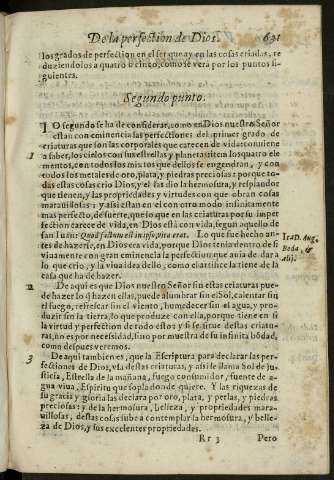 De la perfection de Dios. 631
los grados de perfection en el ser que ay en las cosas criadas, re
duziendolos a quatro o cinco, como se vera por los puntos si
guientes.
Segundo punto.
LO segundo se ha de considerar, como en Dios nuestro Señor
estan con eminencia las perfectiones del primer grado de
criaturas que son las corporales que carecen de vida: conuiene
1 a saber, los cielos con sus estrellas y planetas, item los quatro ele
mentos, con todos los mixtos que dellos se engendran, y con
todos los metales de oro, plata, y piedras preciosas: porque to
das estas cosas crio Dios, y el las dio la hermosura, y resplandor
que tienen, y las propriedades y virtudes con que obran cosas
marauillosas: y assi estan en el con otro modo infinitamente
mas perfecto, de suerte, que lo que en las criaturas por su imper
fection carece de vida, en Dios està con vida, segun aquello de
san Iuan: Quod factum est in ipso vita erat. Lo que fue hecho an
tes de hazerse, en Dios era vida, porque Dios tenia dentro de si
viuamente con gran eminencia la perfection que auia de dar a
lo que crio, y la viua idea dello, como el artifice la tiene de la
casa que ha de hazer.
Ita D. Aug.
Beda, &
alij.
2 De aqui es que Dios nuestro Señor sin estas criaturas pue-
de hazer lo q̃ hazen ellas, puede alumbrar sin el Sol, calentar sin
el fuego, refrescar sin el viento, humedecer sin el agua, y pro-
duzir sin la tierra, lo que produce con ella, porque tiene en si
la virtud y perfection de todo esto: y si se sirue destas criatu-
ras, no es por necessidad, sino por muestra de su infinita bõdad,
como despues veremos.
3 De aqui tambien es, que la Escriptura para declarar las per-
fectiones de Dios, vsa destas criaturas, y assi le llama Sol de ju-
sticia, Estrella de la mañana, fuego consumidor, fuente de a-
gua viua, Espiritu que sopla donde quiere. Y las riquezas de
su gracia y gloria las declara por oro, plata, y perlas, y piedras
preciosas: y de la hermosura, belleza, y propriedades mara-
uillosas, destas cosas sube a contemplar la hermosura, y belle-
za de Dios, y sus excelentes propriedades.
Rr 3 Pero